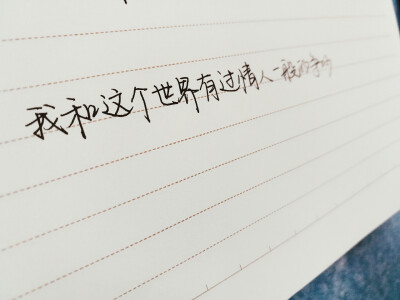 我和这个世界有过情人一般的争吵